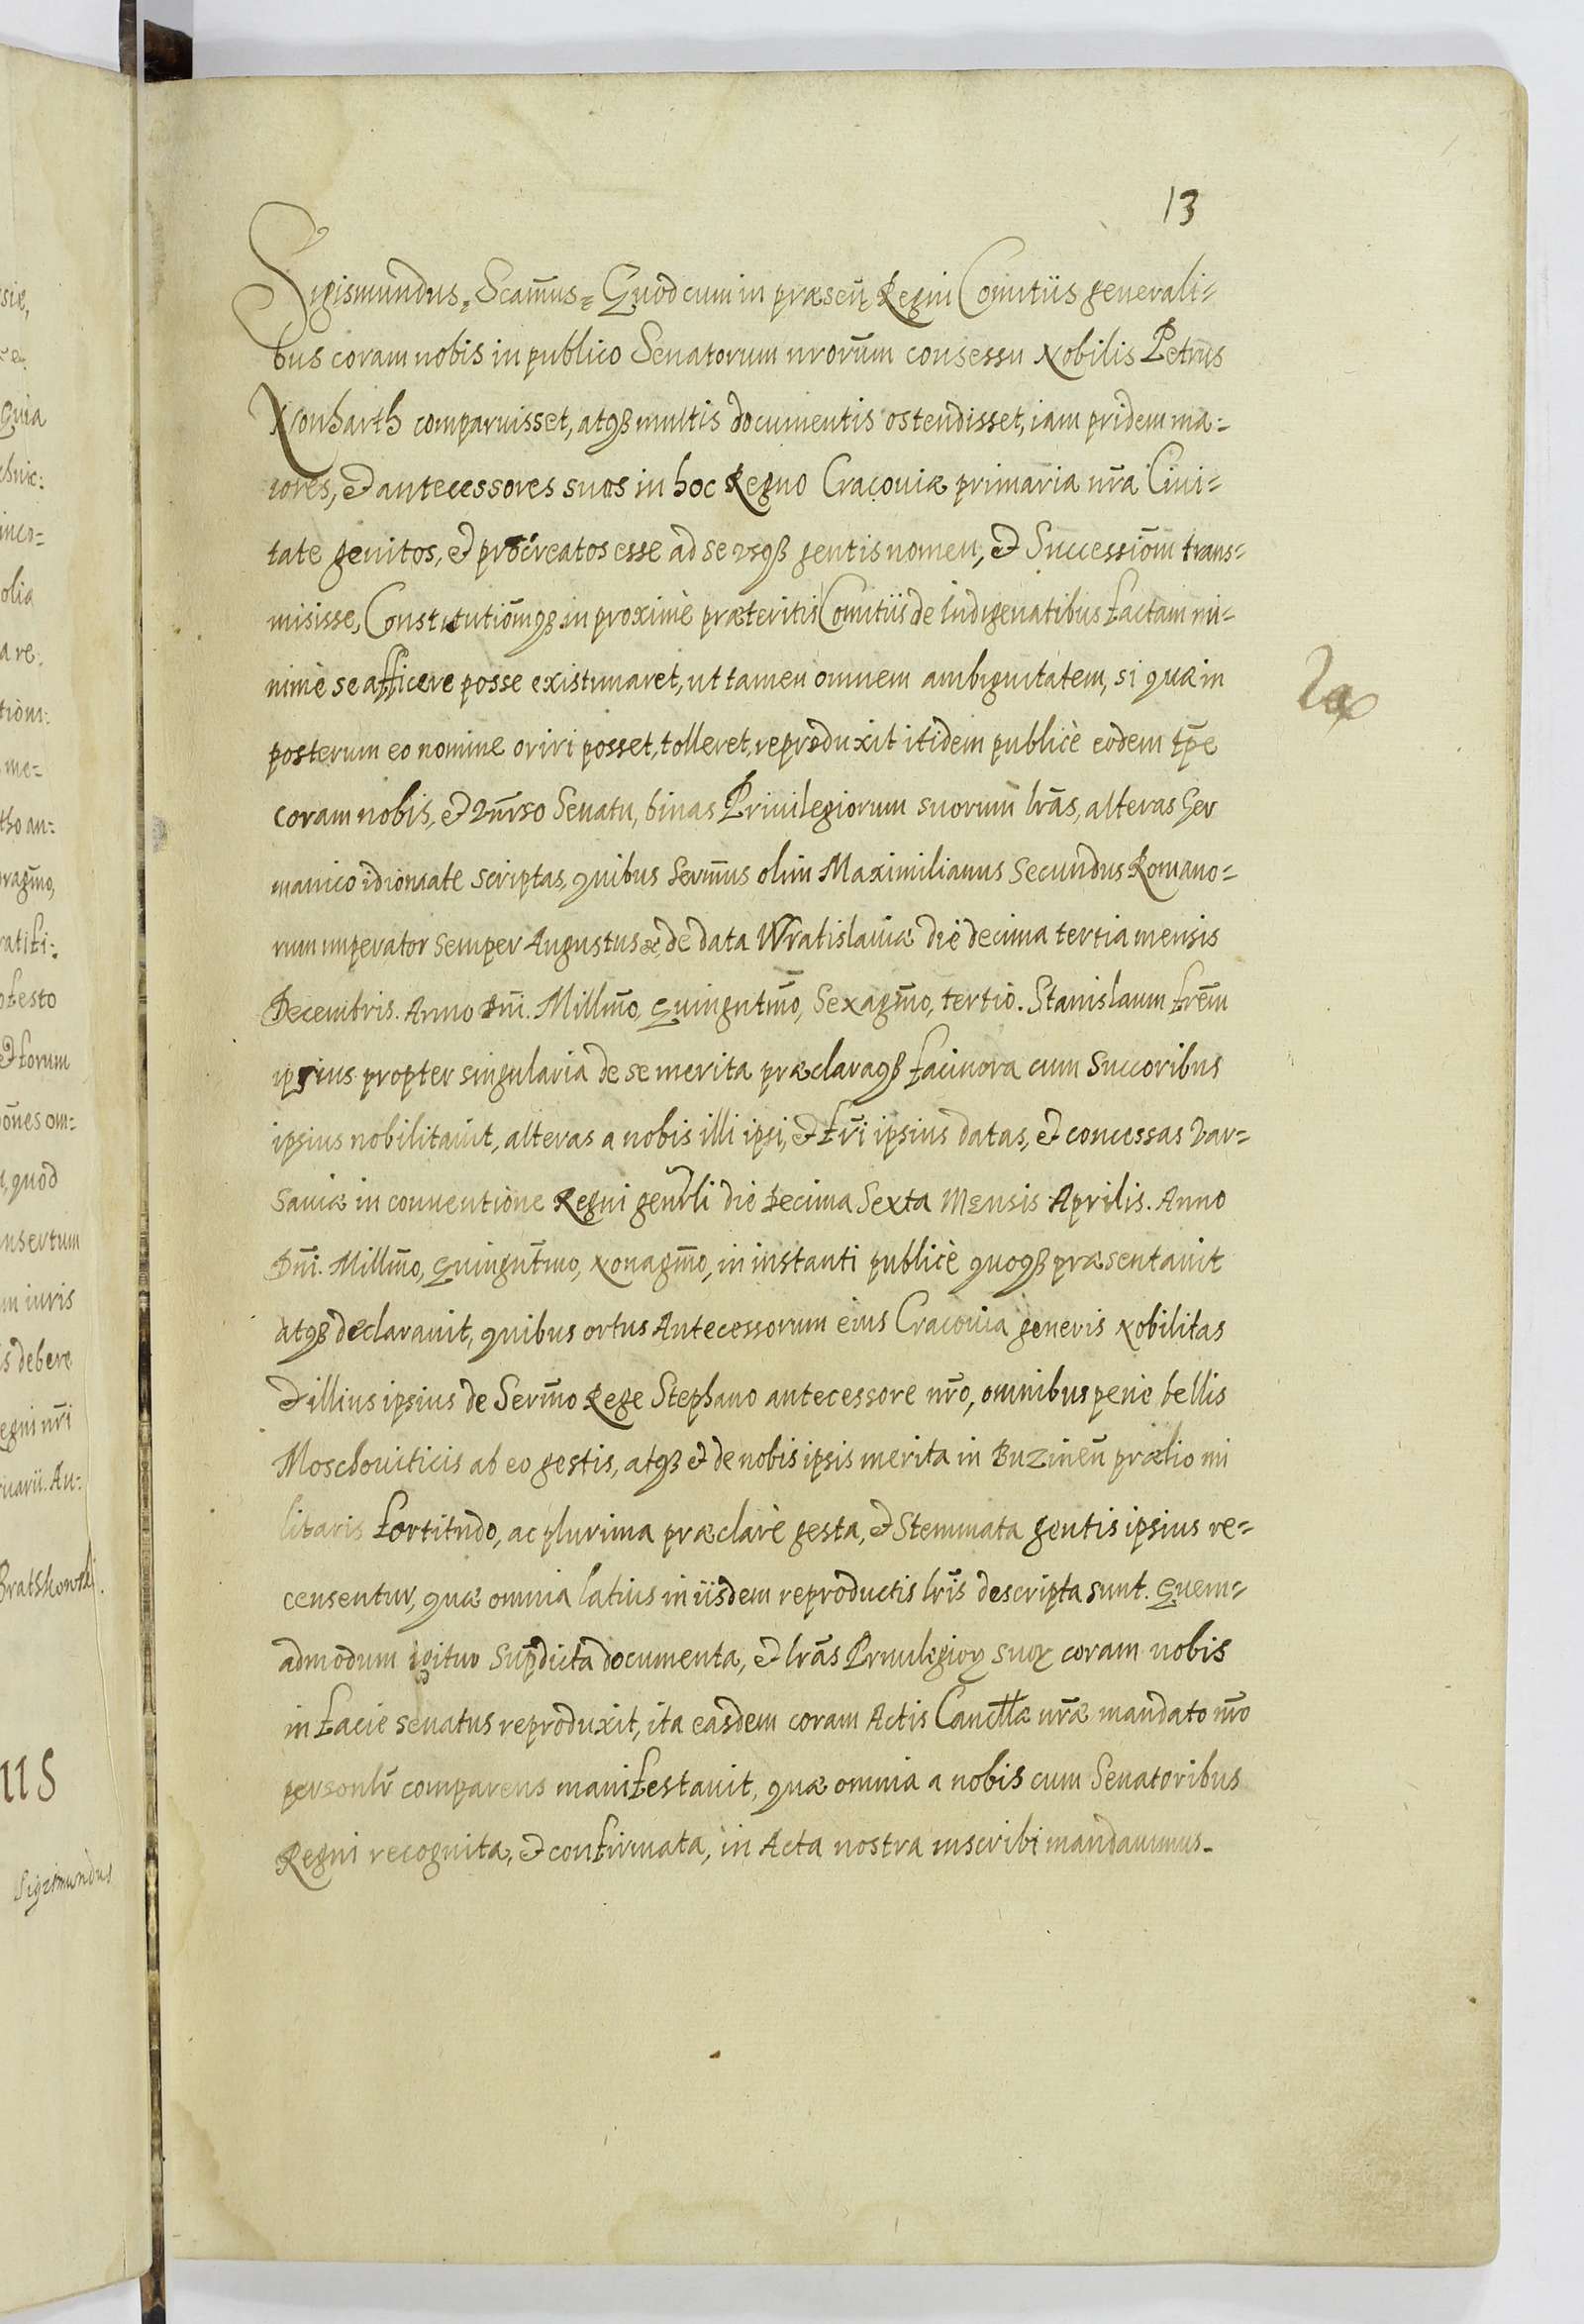 13
Sigismundus. Scam̃us. Quod cum in præseñ Regni Comitiis generali=
bus coram nobis in publico Senatorum nrorũm consessu Nobilis Petrus
Nonharth comparuisset, atq3 multis documentis ostendisset, iam pridem ma=
iores, et antecessores suos in hoc Regno Cracouiæ primaria nrã Ciui=
tate genitos, et procreatos esse ad se vsq3 gentis nomen, et Successiõm trans=
misisse, Constitutiõmq3 in proximè præteritis Comitiis de Indigenatibus factam mi=
nimè se afficere posse existimaret, ut tamen omnem ambiguitatem, si qua in
posterum eo nomine oriri posset, tolleret, reproduxit itidem publicè eodem tp̃e
coram nobis, et Vnĩrso Senatu, binas Priuilegiorum suorum lrãs, alteras Ger
manico idiomate scriptas, quibus Serm̃us olim Maximilianus Secundus Romano=
rum imperator semper Augustus & de data Wratislauiæ die decima tertia mensis
Decembris. Anno Dñi. Millm̃o, Quingntm̃o, Sexagm̃o, tertio. Stanislaum frẽm
ipsius propter singularia de se merita præclaraq3 facinora cum Succoribus
ipsius nobilitauit, alteras a nobis illi ipsi, et frĩ ipsius datas, et concessas Var=
sauiæ in conuentione Regni genrãli die Decima Sexta Mensis Aprilis. Anno
Dñi. Millm̃o, Quingnt̃mo, Nonagm̃o, in instanti publicè quoq3 præsentauit
atq3 declarauit, quibus ortus Antecessorum eius Cracouia generis Nobilitas
et illius ipsius de Serm̃o Rege Stephano antecessore nrõ, omnibus penè bellis
Moschouiticis ab eo gestis, atq3 et de nobis ipsis merita in Buzineñ prælio mi
litaris fortitudo, ac plurima præclarè gesta, et Stemmata gentis ipsius re=
censentur, quæ omnia latius in iisdem reproductis lrĩs descripta sunt. Quem=
admodum igitur Sup̃dicta documenta, et lrãs Priuilegioꝝ suoꝝ coram nobis
in facie senatus reproduxit, ita easdem coram Actis Cancllæ nrãe mandato nrõ
personlr̃ comparens manifestauit, quæ omnia a nobis cum Senatoribus
Regni recognita, et confirmata, in Acta nostra inscribi mandauimus.